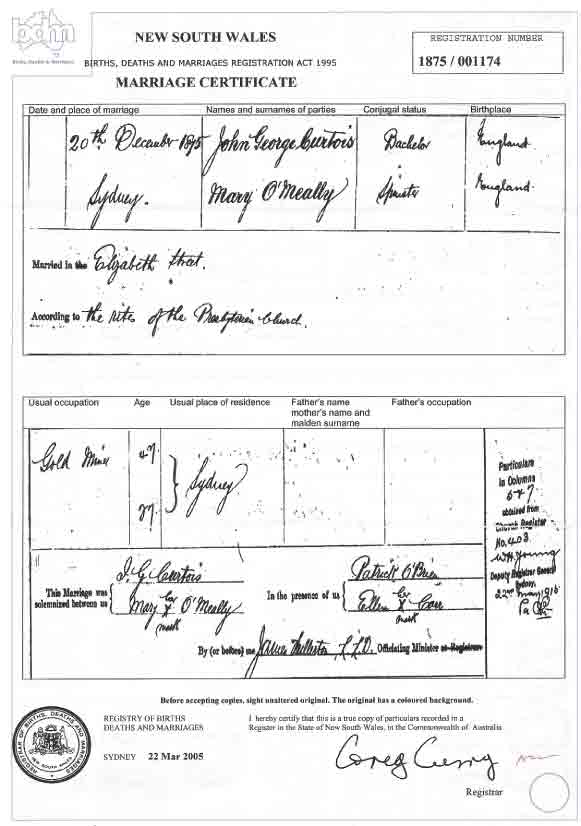 bdm
Births, Deaths & Marriages
NEW SOUTH WALES
BIRTHS, DEATHS AND MARRIAGES REGISTRATION ACT 1995
MARRIAGE CERTIFICATE
REGISTRATION NUMBER
1875 / 001174
Date and place of marriage Names and surnames of parties Conjugal status Birthplace
20th December 1875 John George Curtois Bachelor England
Sydney. Mary O'Meally Spinster England
Married in the Elizabeth Street.
According to the rites of the Presbyterian Church.
Usual occupation Age Usual place of residence Father's name Father's occupation
mother's name and
maiden surname
Gold Miner 47
Sydney
27
Particulars
in Columns
6 & 7
obtained from
Church Register
No. 403
W H Young
Deputy Registrar General
Sydney.
22nd May 1916
J. G. Curtois Patrick O'Brien
This Marriage was
solemnized between us
In the presence of us
Mary her X mark O'Meally Ellen her X mark Carr
By (or before) me James Fullerton L.L.D. Officiating Minister or Registrar
Before accepting copies, sight unaltered original. The original has a coloured background.
REGISTRY OF BIRTHS
DEATHS AND MARRIAGES
SYDNEY 22 Mar 2005
I hereby certify that this is a true copy of particulars recorded in a
Register in the State of New South Wales, in the Commonwealth of Australia
Greg Curry
Registrar
REGISTRAR OF BIRTHS, DEATHS AND MARRIAGES
NEW SOUTH WALES